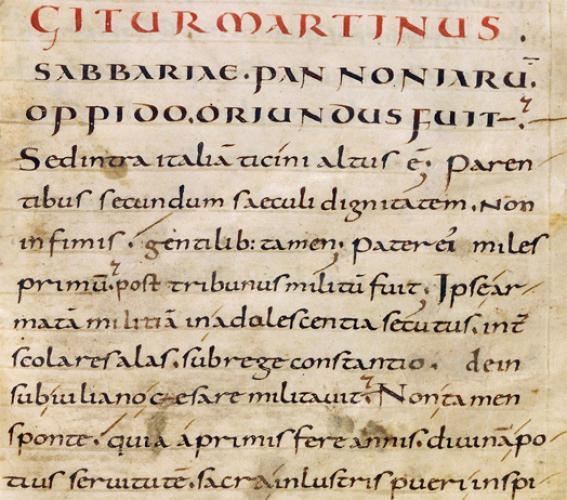 GITUR MARTINUS.
SABBARIAE. PANNONIARŪ.
OPPIDO. ORIUNDUS FUIT.
Sed intra italiā ticini altus ē; Paren
tibus secundum saeculi dignitatem. Non
infimis. gentilib: tamen; Pater ei miles
primū. post tribunus militū fuit; Ipse ar
matā militiā in adolescentia secutus. int
scolares alas. sub rege constantio. dein
sub iuliano caesare militavit. Non tamen
sponte. quia a primis fere annis. divinā po
tius servitutē. sacra inlustris pueri inspi